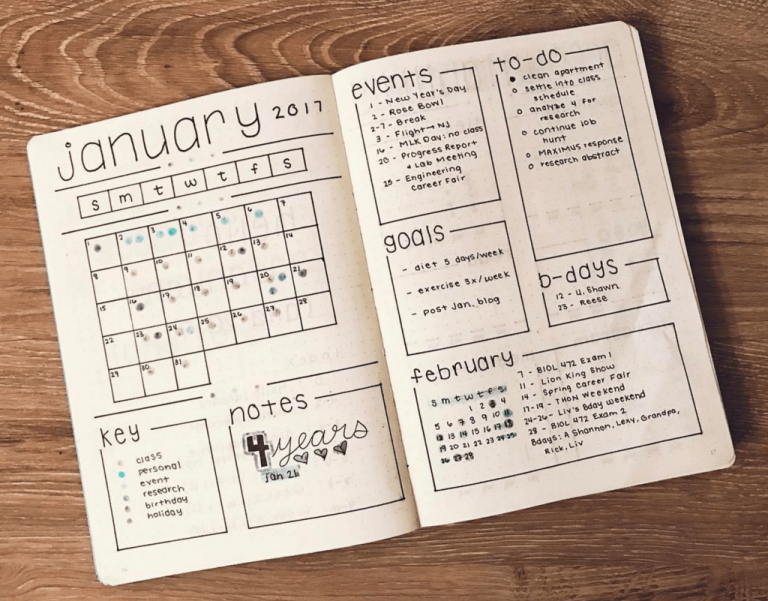 january 2017
s m t w t f s
1 2 3 4 5 6 7
8 9 10 11 12 13 14
15 16 17 18 19 20 21
22 23 24 25 26 27 28
29 30 31
key
class
personal
event
research
birthday
holiday
notes
4 years
Jan 26
events
1 - New Year's Day
2 - Rose Bowl
2-7 - Break
3 - Flight → NJ
16 - MLK Day: no class
20 - Progress Report
+ Lab Meeting
25 - Engineering
Career Fair
goals
- diet 5 days/week
- exercise 3x/week
- post Jan. blog
to-do
clean apartment
settle into class
schedule
analyze 4 for
research
continue job
hunt
MAXIMUS response
research abstract
b-days
12 - U. Shawn
23 - Reese
february
s m t w t f s
1 2 3 4
5 6 7 8 9 10 11
12 13 14 15 16 17 18
19 20 21 22 23 24 25
26 27 28
7 - BIOL 472 Exam 1
11 - Lion King Show
14 - Spring Career Fair
17-19 - THON Weekend
24-26 - Liv's Bday Weekend
28 - BIOL 472 Exam 2
Bdays: A Shannon, Lexy, Grandpa,
Rick, Liv